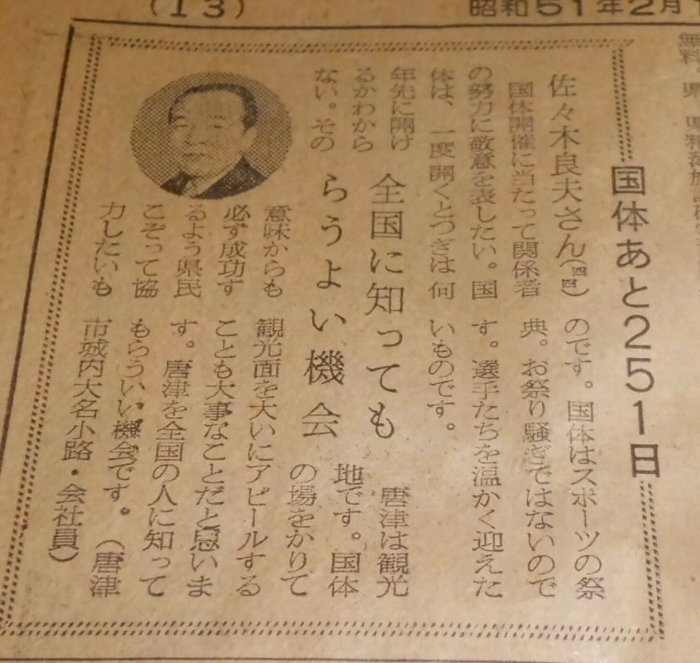 (13)
昭和51年2月
国体あと251日
佐々木良夫さん(四四)
国体開催に当たって関係者
の努力に敬意を表したい。国
体は、一度開くとつぎは何
年先に開け
るかわから
ない。その
全国に知っても
らうよい機会
意味からも
必ず成功す
るよう県民
こぞって協
力したいも
のです。国体はスポーツの祭
典。お祭り騒ぎではないので
す。選手たちを温かく迎えた
いものです。
唐津は観光
地です。国体
の場をかりて
観光面を大いにアピールする
ことも大事なことだと思いま
す。唐津を全国の人に知って
もらういい機会です。(唐津
市城内大名小路・会社員)